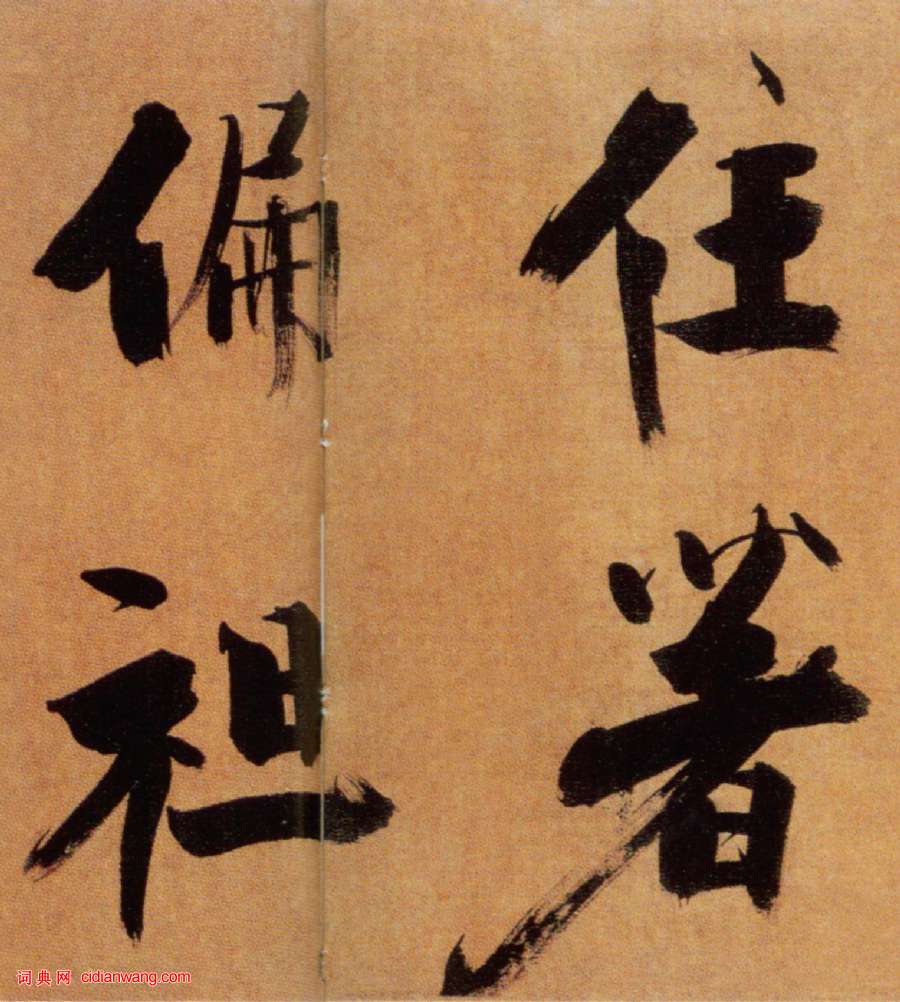 住著
偏袒
词典网 cidianwang.com